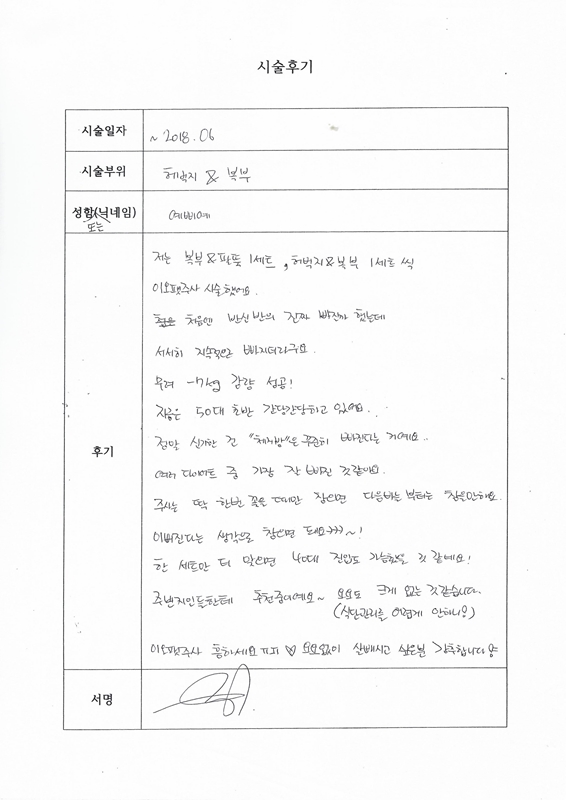 시술후기
시술일자 ~ 2018. 06
시술부위 허벅지 & 복부
성함(닉네임) 예삐예
또는
저는 복부&팔뚝 1세트, 허벅지&복부 1세트 씩
이오팻주사 시술했어요.
처음엔 반신반의 진짜 빠질까 했는데
서서히 지속적으로 빠지더라구요.
무려 -7kg 감량 성공!
지금은 50대 초반 간당간당하고 있어요.
정말 신기한 건 "체지방"은 꾸준히 빠진다는 거예요..
여러 다이어트 중 가장 잘 빠진 것 같아요.
주사는 딱 한번 꽂을 때만 참으면 다음바늘 부터는 참을만해요.
이뻐진다는 생각으로 참으면 돼요>>>~!
한 세트만 더 맞으면 40대 진입도 가능했을 것 같애요!
주변지인들한테 추천중이예요~ 요요도 크게 없는 것 같습니다.
(식단관리를 어렵게 안하니용)
후기
이오팻주사 흥하세요 ㅠㅠ ♡ 요요없이 살빼시고 싶은분 강추합니다 용
서명